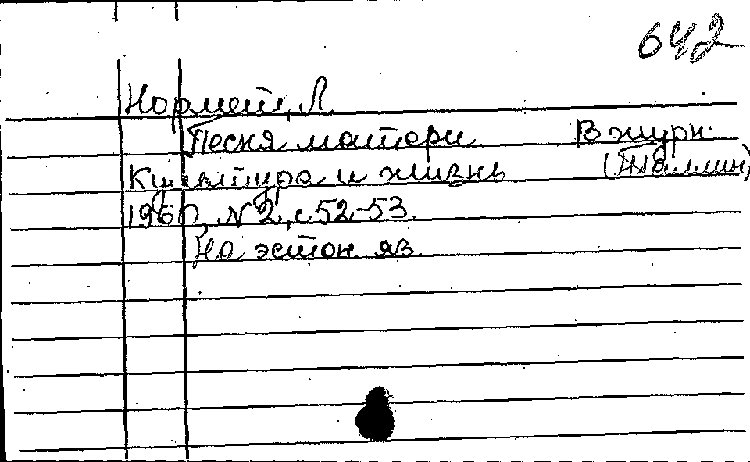 642
Нормет, Л.
Песня матери В журн.
Культура и жизнь (Таллин)
1960, № 2, с. 52-53.
На эстон. яз.